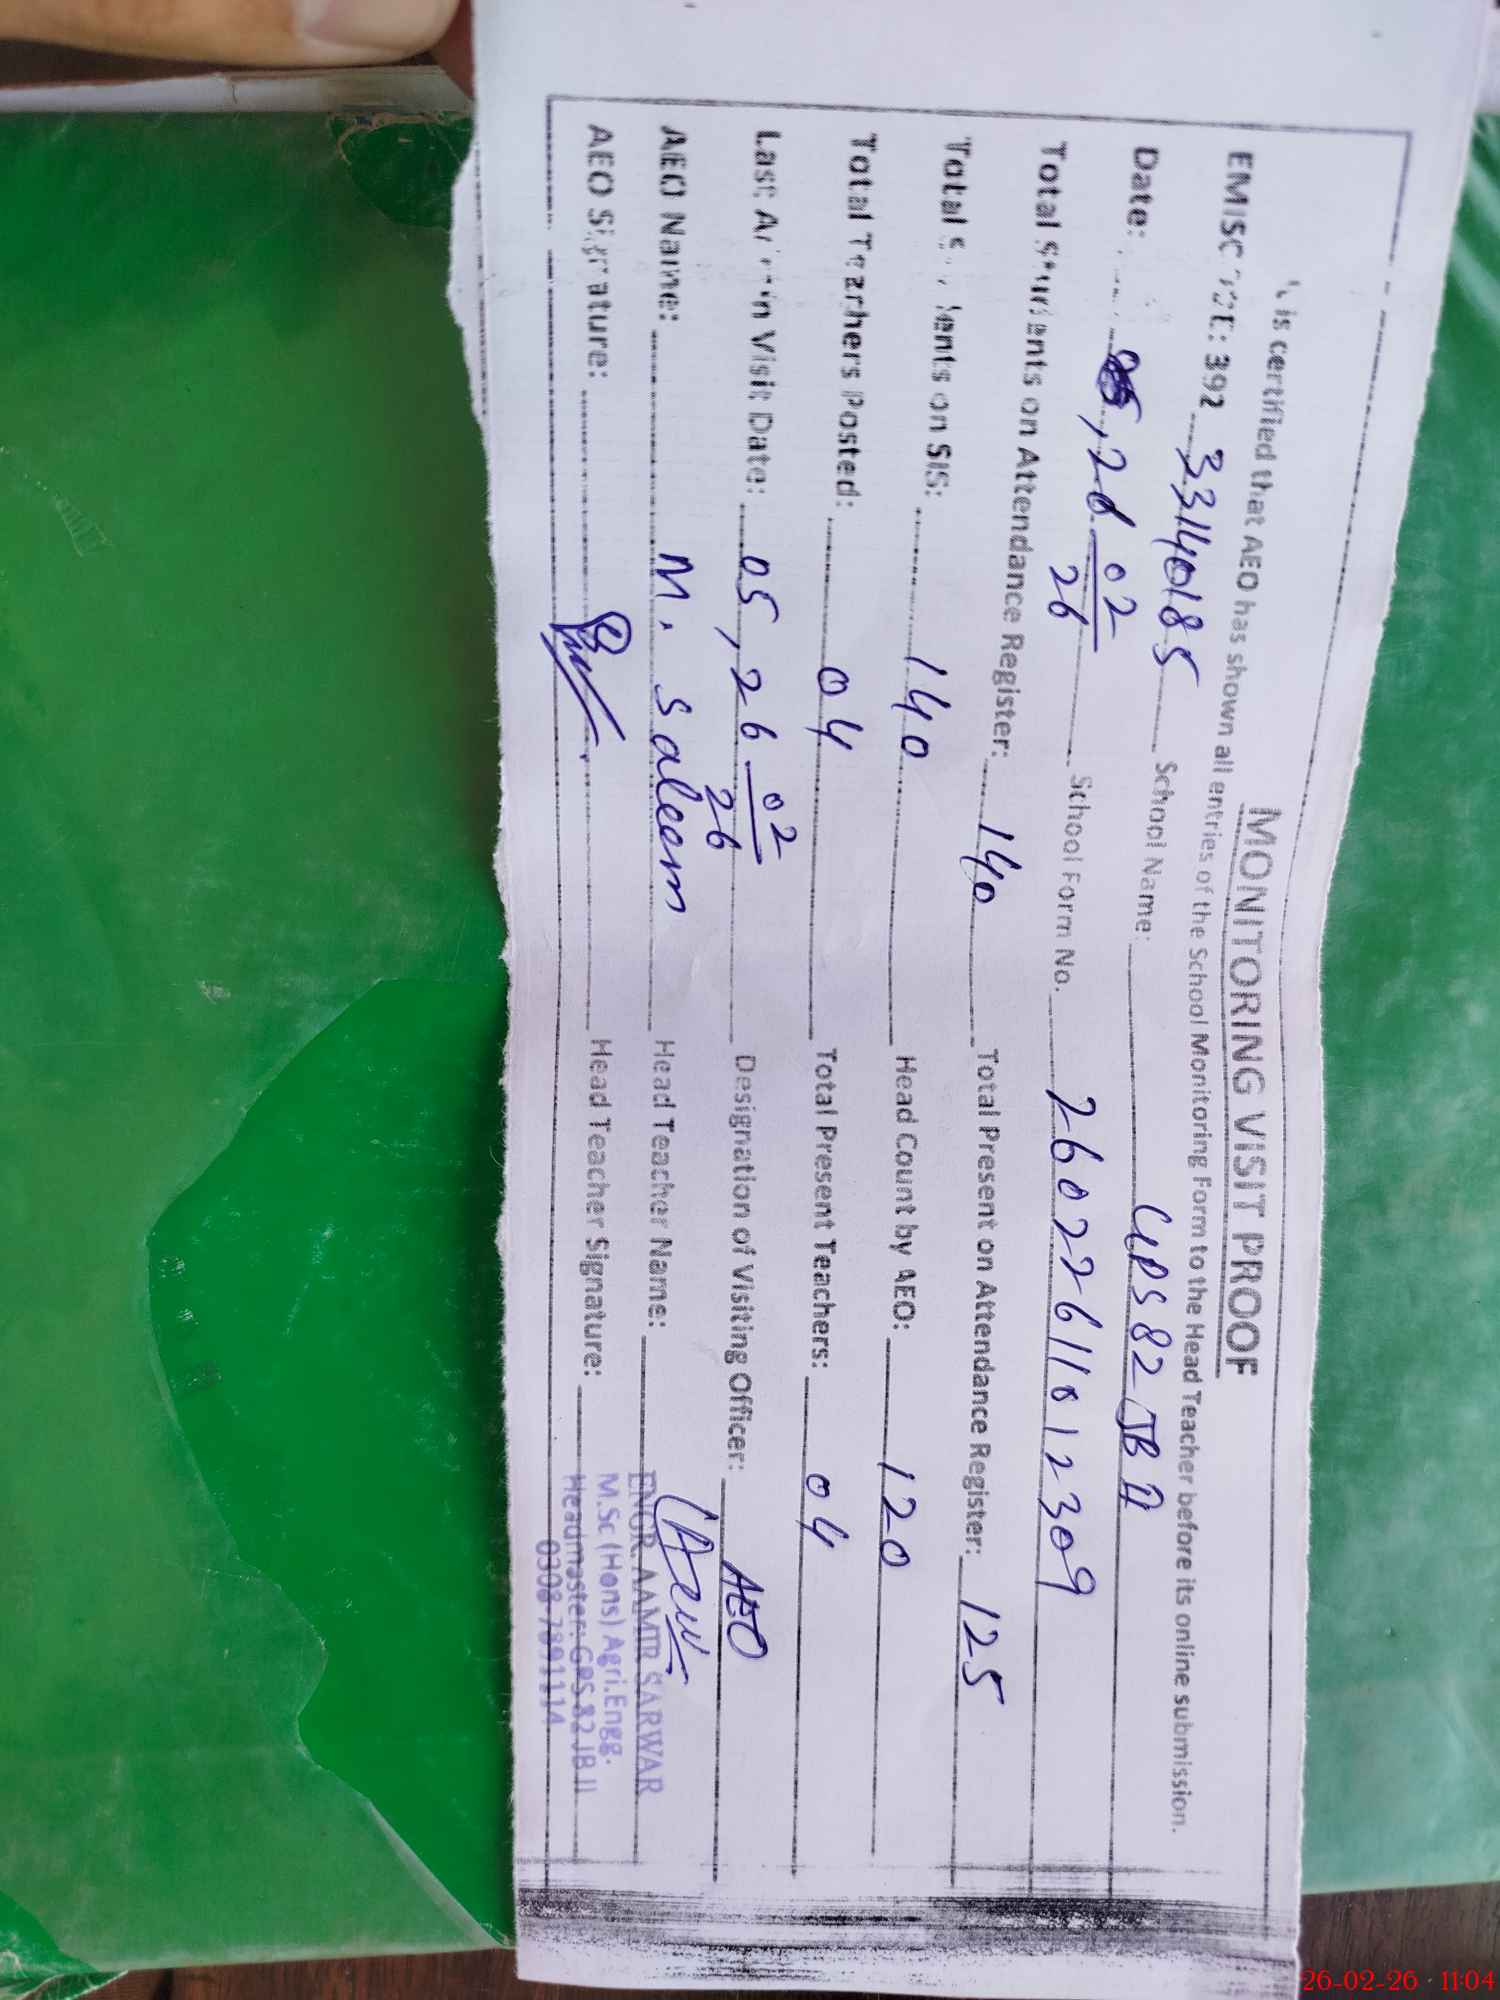 MONITORING VISIT PROOF
is certified that AEO has shown all entries of the School Monitoring Form to the Head Teacher before its online submission.
EMISC : 392 33140185 School Name: GPS 82 JB II
Date: , 26 02/26 School Form No. 26022611012309
Total Students on Attendance Register: 140 Total Present on Attendance Register: 125
Total Students on SIS: 140 Head Count by AEO: 120
Total Teachers Posted: 04 Total Present Teachers: 04
Last Visit Date: 05, 26 02/26 Designation of Visiting Officer: AEO
AEO Name: M. Saleem Head Teacher Name:
AEO Signature: Head Teacher Signature:
ENGR. AAMIR SARWAR
M.Sc (Hons) Agri.Engg.
Headmaster: GPS 82 JB II
0308-7891114
26-02-26 11:04